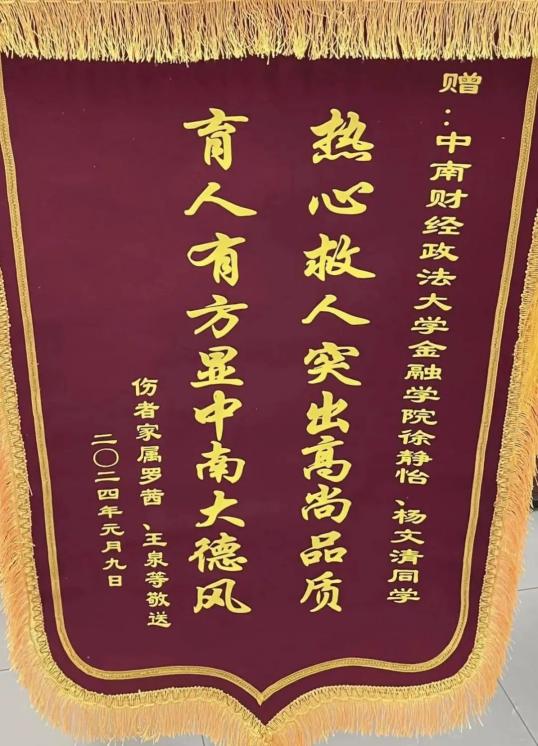 赠：中南财经政法大学金融学院徐静怡、杨文清同学
热心救人突出高尚品质
育人有方显中南大德风
伤者家属罗茜、王泉等敬送
二〇二四年元月九日